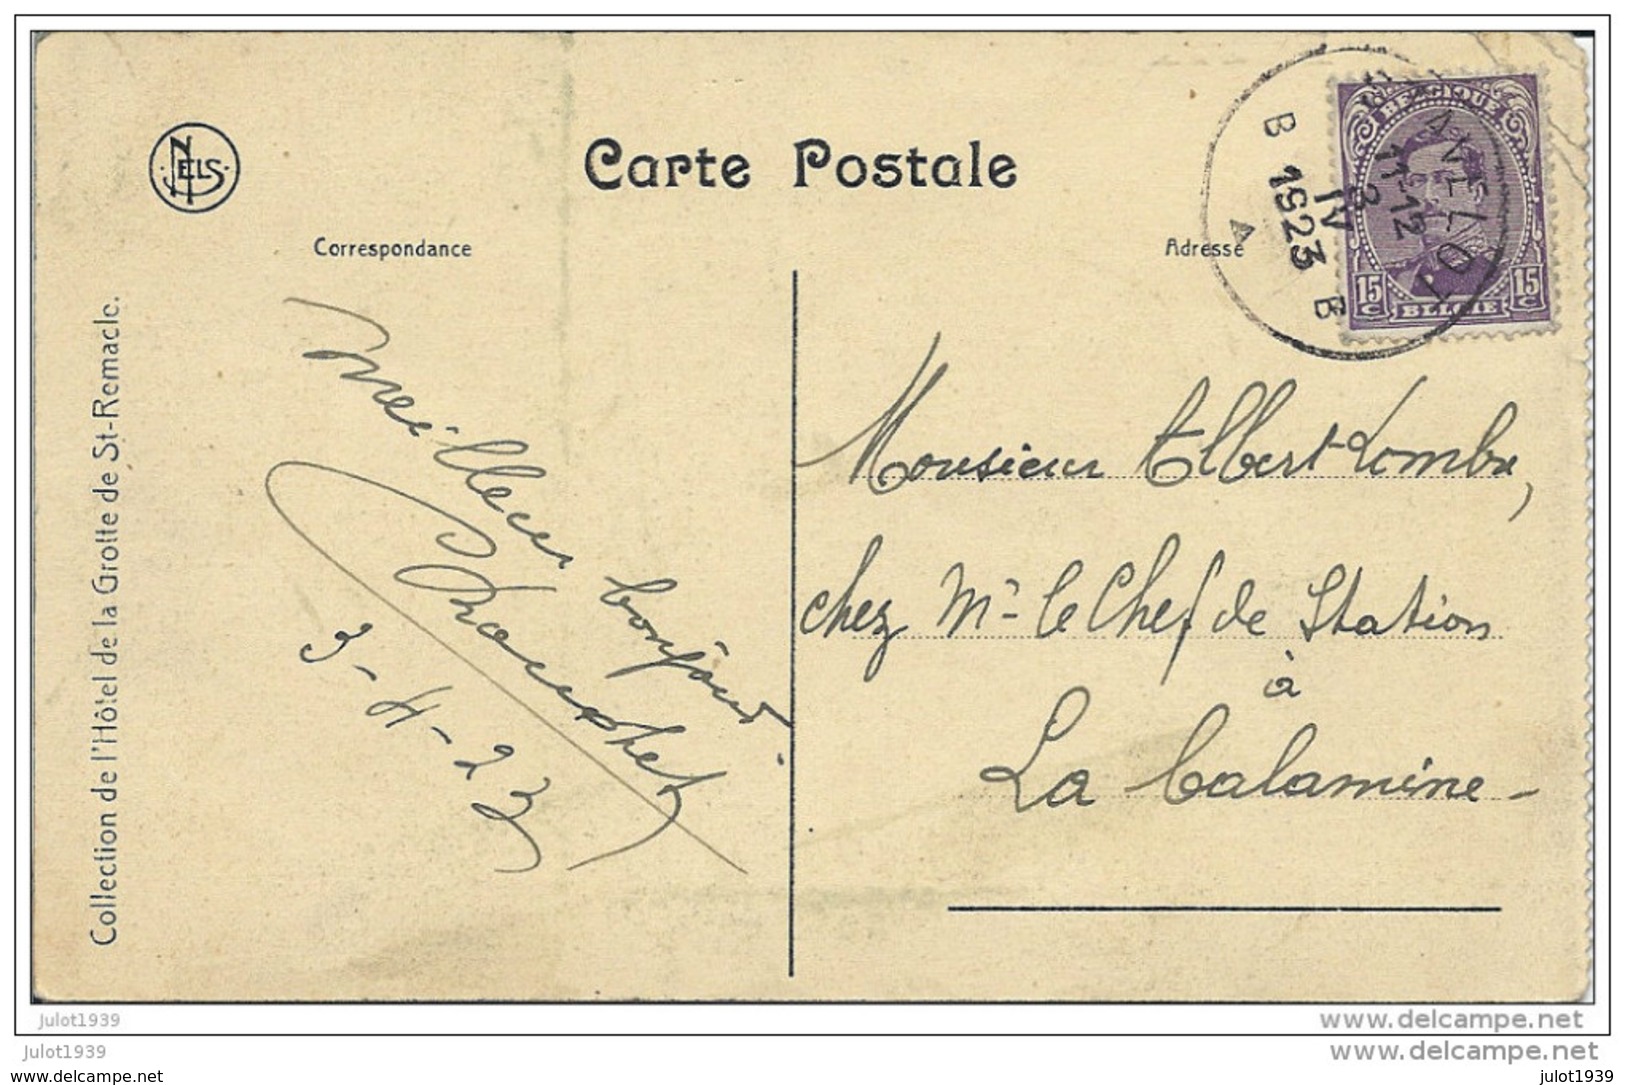 NELS
Carte Postale
Correspondance
Adresse
BELGIQUE
15 C
15 C
BELGIE
STAVELOT
11-12
3
IV
1923
B B
A
Collection de l'Hôtel de la Grotte de St-Remacle.
Meilleur bonjour
3-4-23
Monsieur Albert Lombu,
chez Mr le Chef de Station
à
La Calamine -
julot1939
www.delcampe.net
julot1939
www.delcampe.net
www.delcampe.net
julot1939